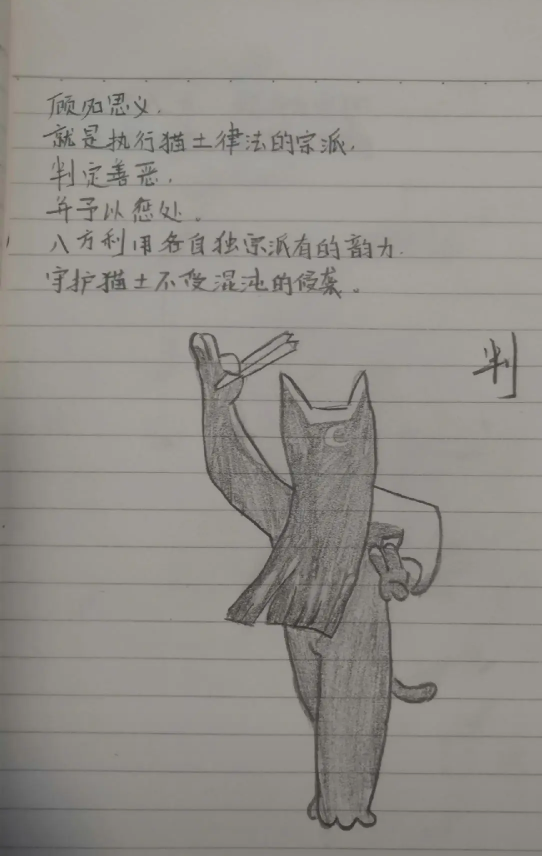 顾名思义,
就是执行猫土律法的宗派,
判定善恶,
并予以惩处。
八方利用各自独宗派有的韵力,
守护猫土不受混沌的侵袭。
判